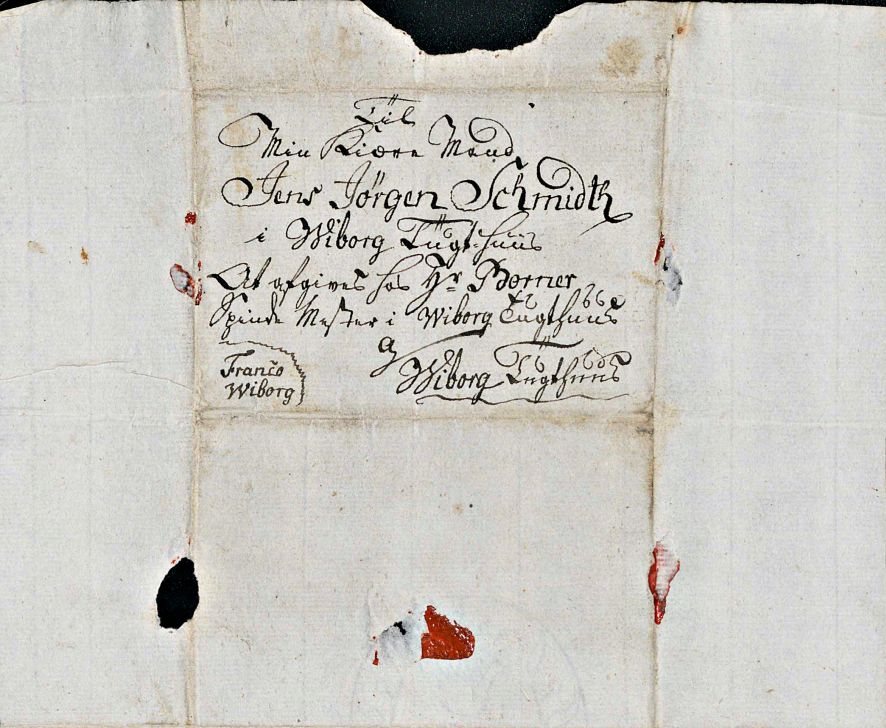 Til
Min Kiære Mand
Jens Jörgen Schmidth
i Wiborg Tügt-huüs
At afgives hos Hr Börner
Spinde Mester i Wiborg Tügthuus
a/ Wiborg Tügthuus
Franco
Wiborg